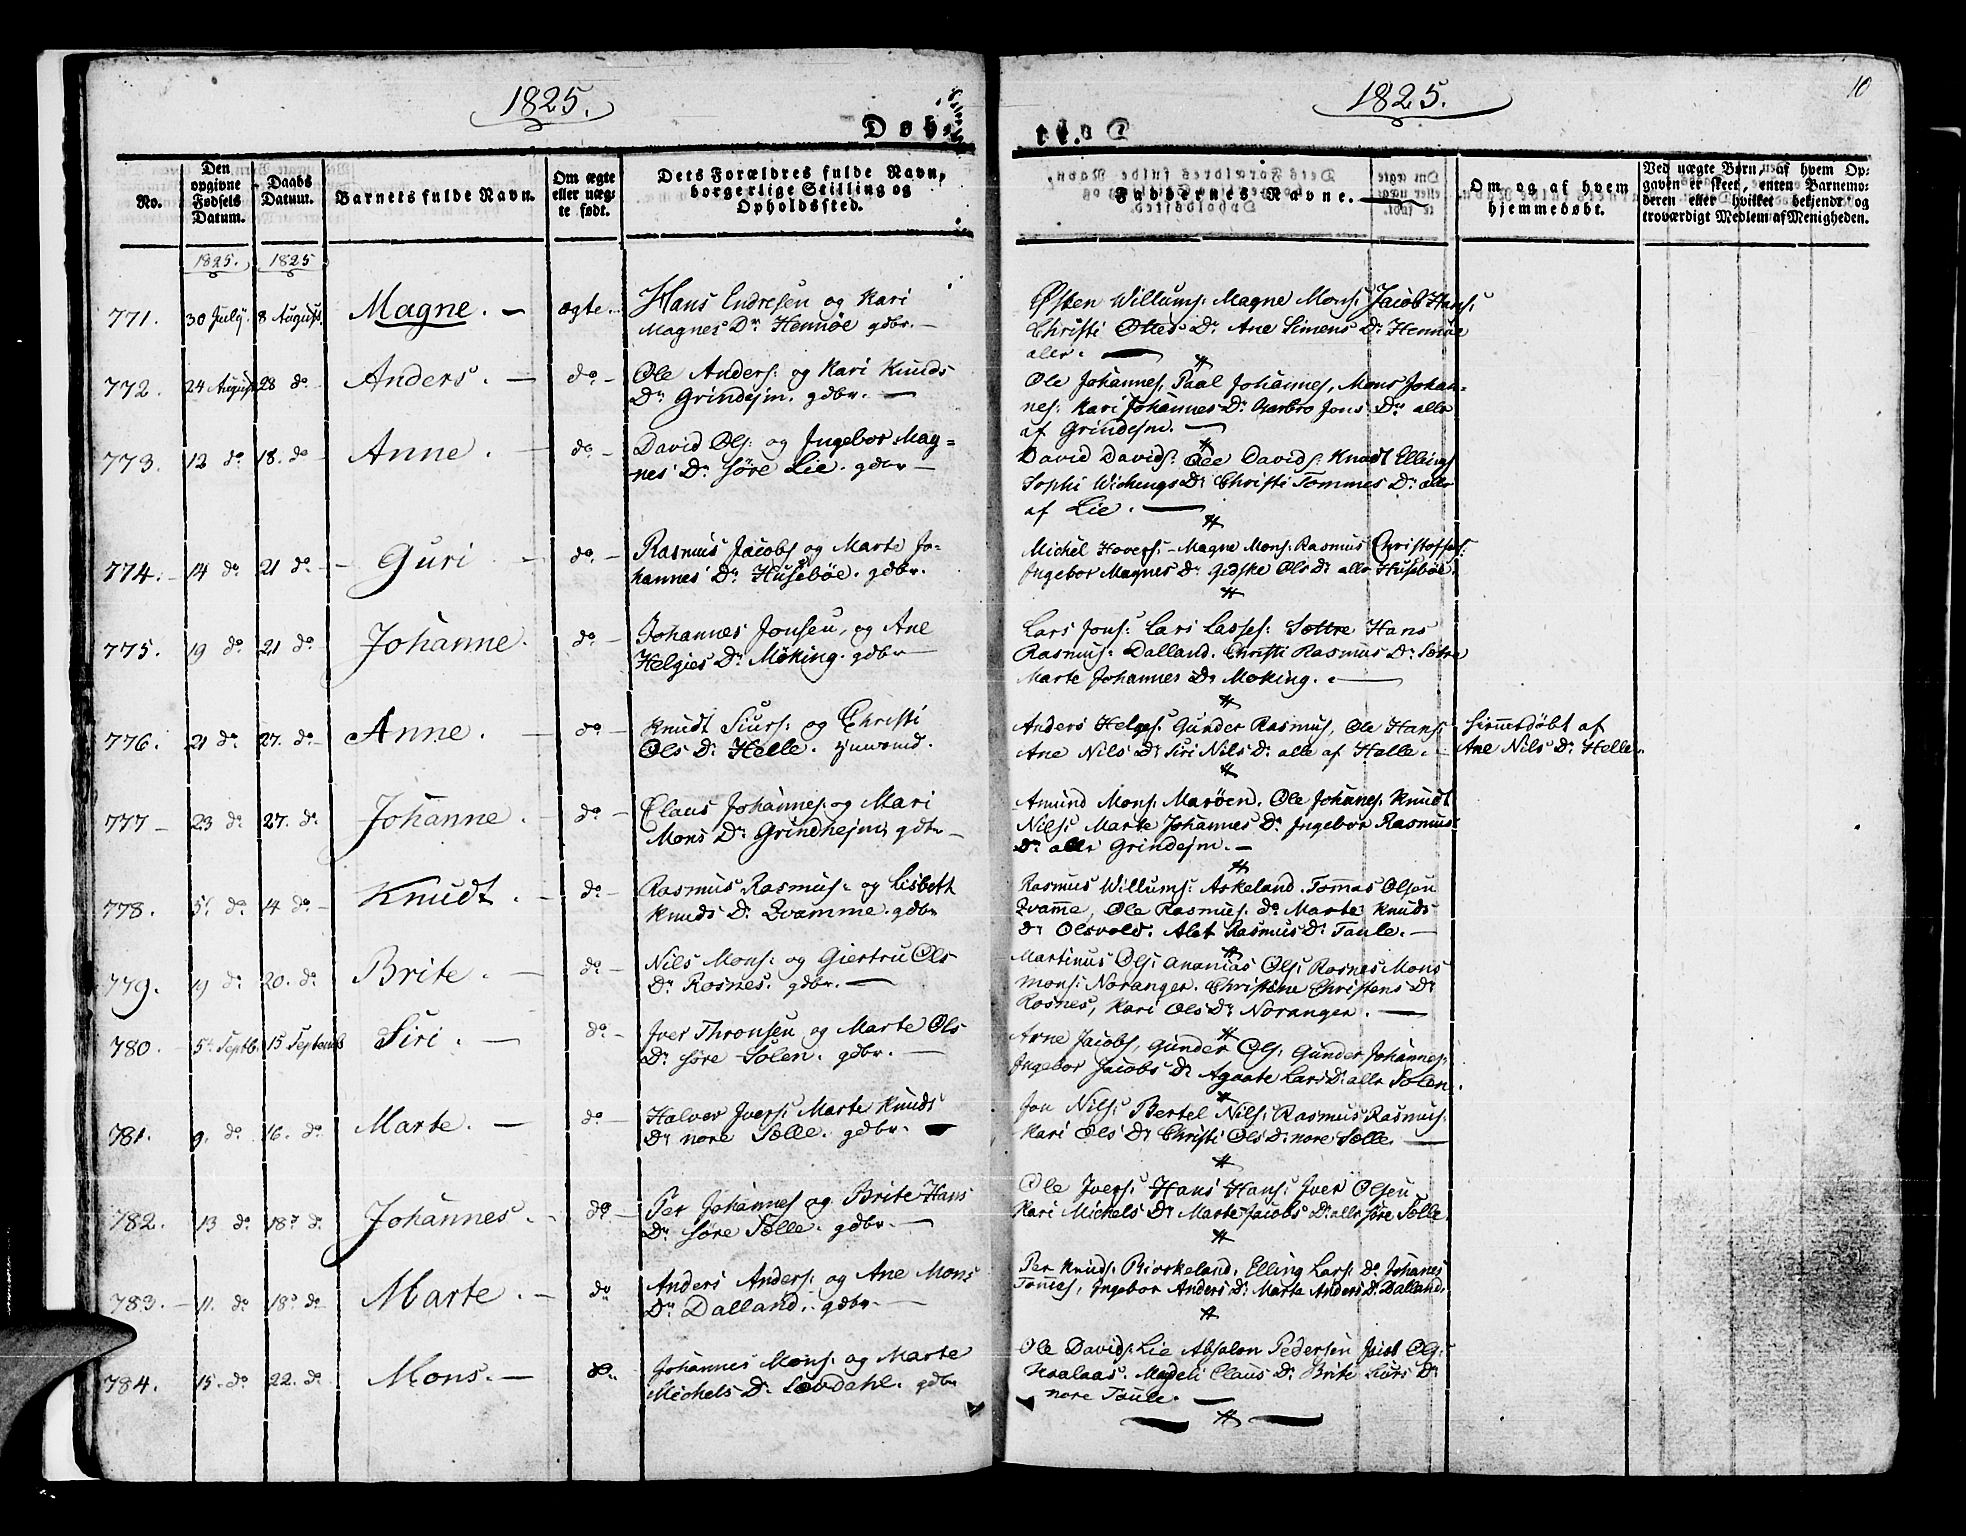 1825.
1825.
10
Døb-
No.
Den opgivne Fødsels Datum.
Daabs Datum.
Barnets fulde Navn.
Om ægte eller uægte født.
Dets Forældres fulde Navn, borgerlige Stilling og Opholdssted.
Faddernes Navne.
Om og af hvem hjemmedøbt.
Ved uægte Børn, af hvem Opgaven er skeet, enten Barnemoderen eller hvilket bekjendt og troværdigt Medlem af Menigheden.
1825. 1825
771. 30 July. 8 August. Magne. — ægte.
Hans Endresen og Kari
Magnes Dr Hennøe gdbr. —
Østen Willums: Magne Mons: Jacob Hans:
Christi Olles Dr Ane Simens Dr Hennøe
aller. —
772. 24 August 28 do Anders. — do —
Ole Anders: og Kari Knuds
Dr Grindejm. gdbr. —
Ole Johannes, Paal Johannes, Mons Johan=
nes: Kari Johannes Dr Barbro Jons Dr alle
af Grindejm. —
773. 12 do 18. do Anne. — do —
David Ols: og Ingebor Mag=
nes Dr Søre Lie. gdbr —
David Davids: Ole Davids: Knudt Ellings
Sophi Wichings Dr Christi Tommes Dr alle
af Lie. —
774. — 14 do 21 do — Guri — do —
Rasmus Jacobs og Marte Jo-
hannes Dr Husebøe. gdbr.
Michel Hovers: — Magne Mons: Rasmus Christoffes:
Ingebor Magnes Dr Gedske Ols Dr alle Husebøe.
775. 19 do 21 do Johanne. do —
Johannes Jonsen, og Ane
Helgies Dr Møking. gdbr —
Lars Jons: Lars Lasses: Sættre Hans
Rasmus: Dalland. Christi Rasmus Dr Sætre
Marte Johannes Dr Moking. —
776. 21 do 27. do — Anne. — do —
Knudt Siurs: og Christi
Ols Dr Helle.
Anders Helges: Gunder Rasmus, Ole Hans:
Ane Nils Dr Siri Nils Dr alle af Helle. —
Hiemedøbt af
Ane Nils Dr Helle.
777 — 23 do 27. do Johanne. — do —
Claus Johannes: og Mari
Mons Dr Grindhejm, gdbr —
Amund Mons: Marøen. Ole Johanes: Knudt
Nils: Marte Johannes Dr Ingebor Rasmus
Dr alle Grindejm. —
778. 5. do 14 do — Knudt. — do —
Rasmus Rasmus: og Lisbeth
Knuds Dr Qvamme. gdbr
Rasmus Willums: Askeland. Tommas Olsen
Qvamme, Ole Rasmus: do Marte Knuds
Dr Olsvold. Alet Rasmus Dr Taule. —
779. 19 do 20. do Brite. — do —
Nils Mons: og Giertru Ols
Dr Rosnes. gdbr. —
Martinus Ols: Ananias Ols: Rosnes Mons
Mons: Noranger. Christine Christens Dr
Rosnes, Kari Ols Dr Noranger. —
780. — 5. Septb. 15 Septemb Siri. — do —
Iver Thronsen og Marte Ols
Dr Søre Solen. gdbr. —
Arne Jacobs, Gunder Ols, Gunder Johannes,
Ingebor Jacobs Dr Agaate Lars Dr alle Solen.
781. 9. do 16. do Marte. — do —
Halver Ivers: Marte Knuds
Dr nore Sælle. gdbr. —
Jon Nils: Bertel Nils: Rasmus Rasmus:
Kari Ols Dr Christi Ols Dr nore Sælle. —
782. 13 do 18. do Johannes. — do —
Per Johannes og Brite Hans
Dr Søre Sælle. gdbr. —
Ole Ivers: Hans Hans: Iver Olsen
Kari Michels Dr Marte Jacobs Dr alle Søre Sælle.
783. — 11. do 18. do — Marte. — do
Anders Anders: og Ane Mons
Dr Dalland. gdbr. —
Per Knuds Birkeland. Elling Lars: do Johanes
Tommes, Ingebor Anders Dr Marte Anders Dr Dalland.
784. 15. do 22. do Mons. — do.
Johannes Mons: og Marte
Michels Dr Sævdahl. gdbr
Ole Davids: Lie Absalon Pedersen Ols:
Haalaas. Madeli Claus Dr Brite Siurs Dr
nore Taule. —